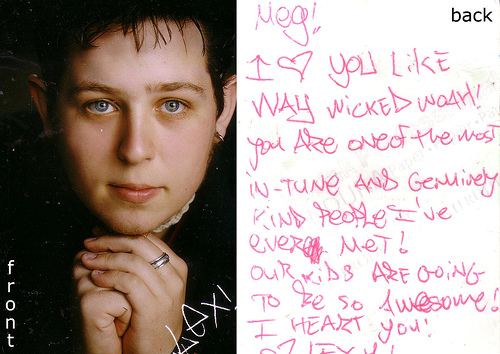 front
LEX!
back
Meg!
I ♡ YOU LiKE
WAY WiCKED WOAH!
You ARE one of the most
iN-TUNE AND Genuinely
KiND PeoPLe I've
EVER MeT!
OUR KiDS ARE GOiNG
TO Be SO AWesome!
I HEART YOU!
♡ LEXY!